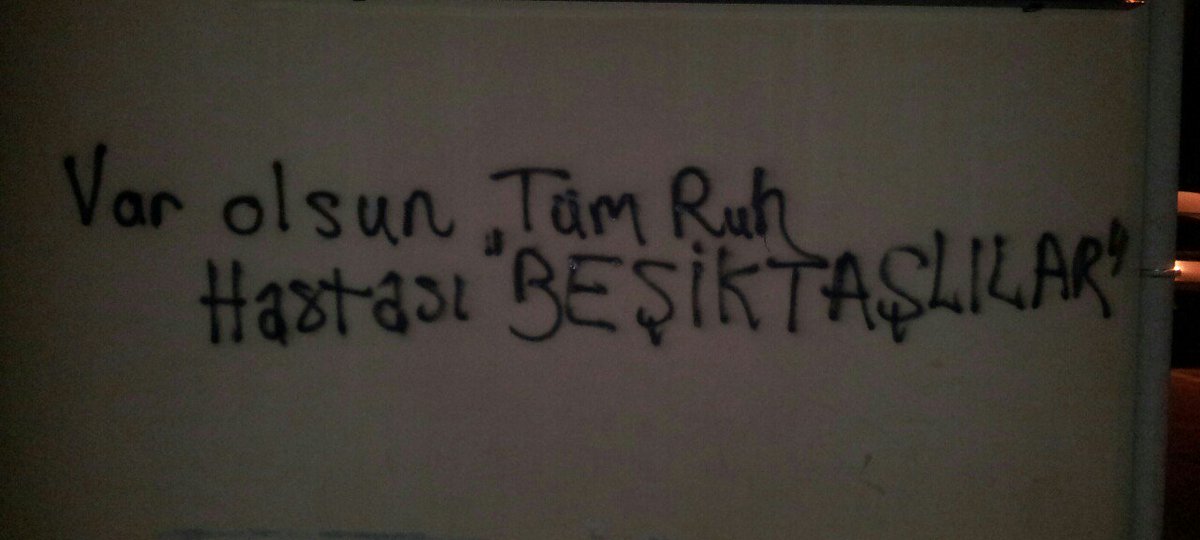 Var olsun Tüm Ruh
Hastası "BEŞİKTAŞLILAR"